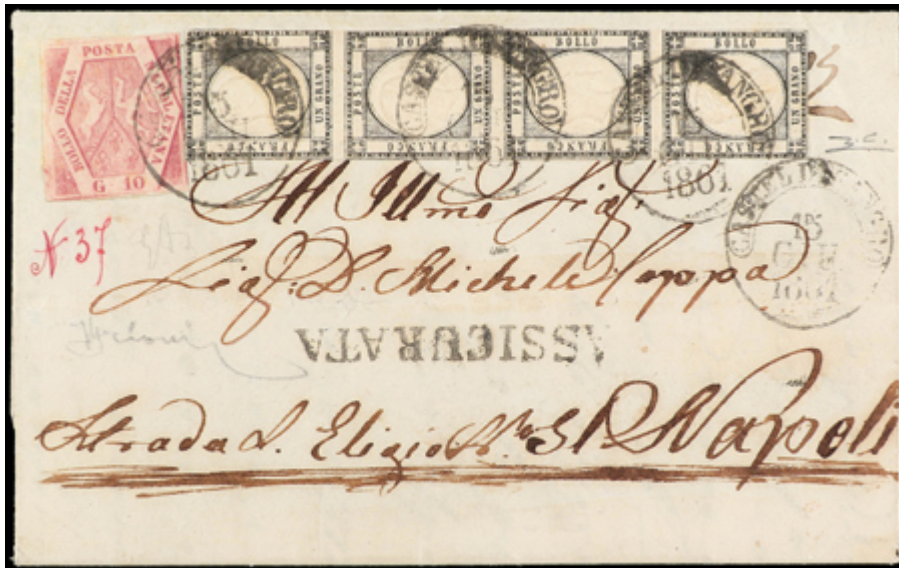 BOLLO DELLA POSTA NAPOLETANA
G 10
BOLLO POSTE UN GRANO FRANCO
BOLLO POSTE UN GRANO FRANCO
BOLLO POSTE UN GRANO FRANCO
BOLLO POSTE UN GRANO FRANCO
1861
1861
CASTEL DI SANGRO
15
GIU
1861
N 37
All Illmo Sigr
Sigr D. Michele Cappa
ASSICURATA
Strada S. Eligio No 31 Napoli